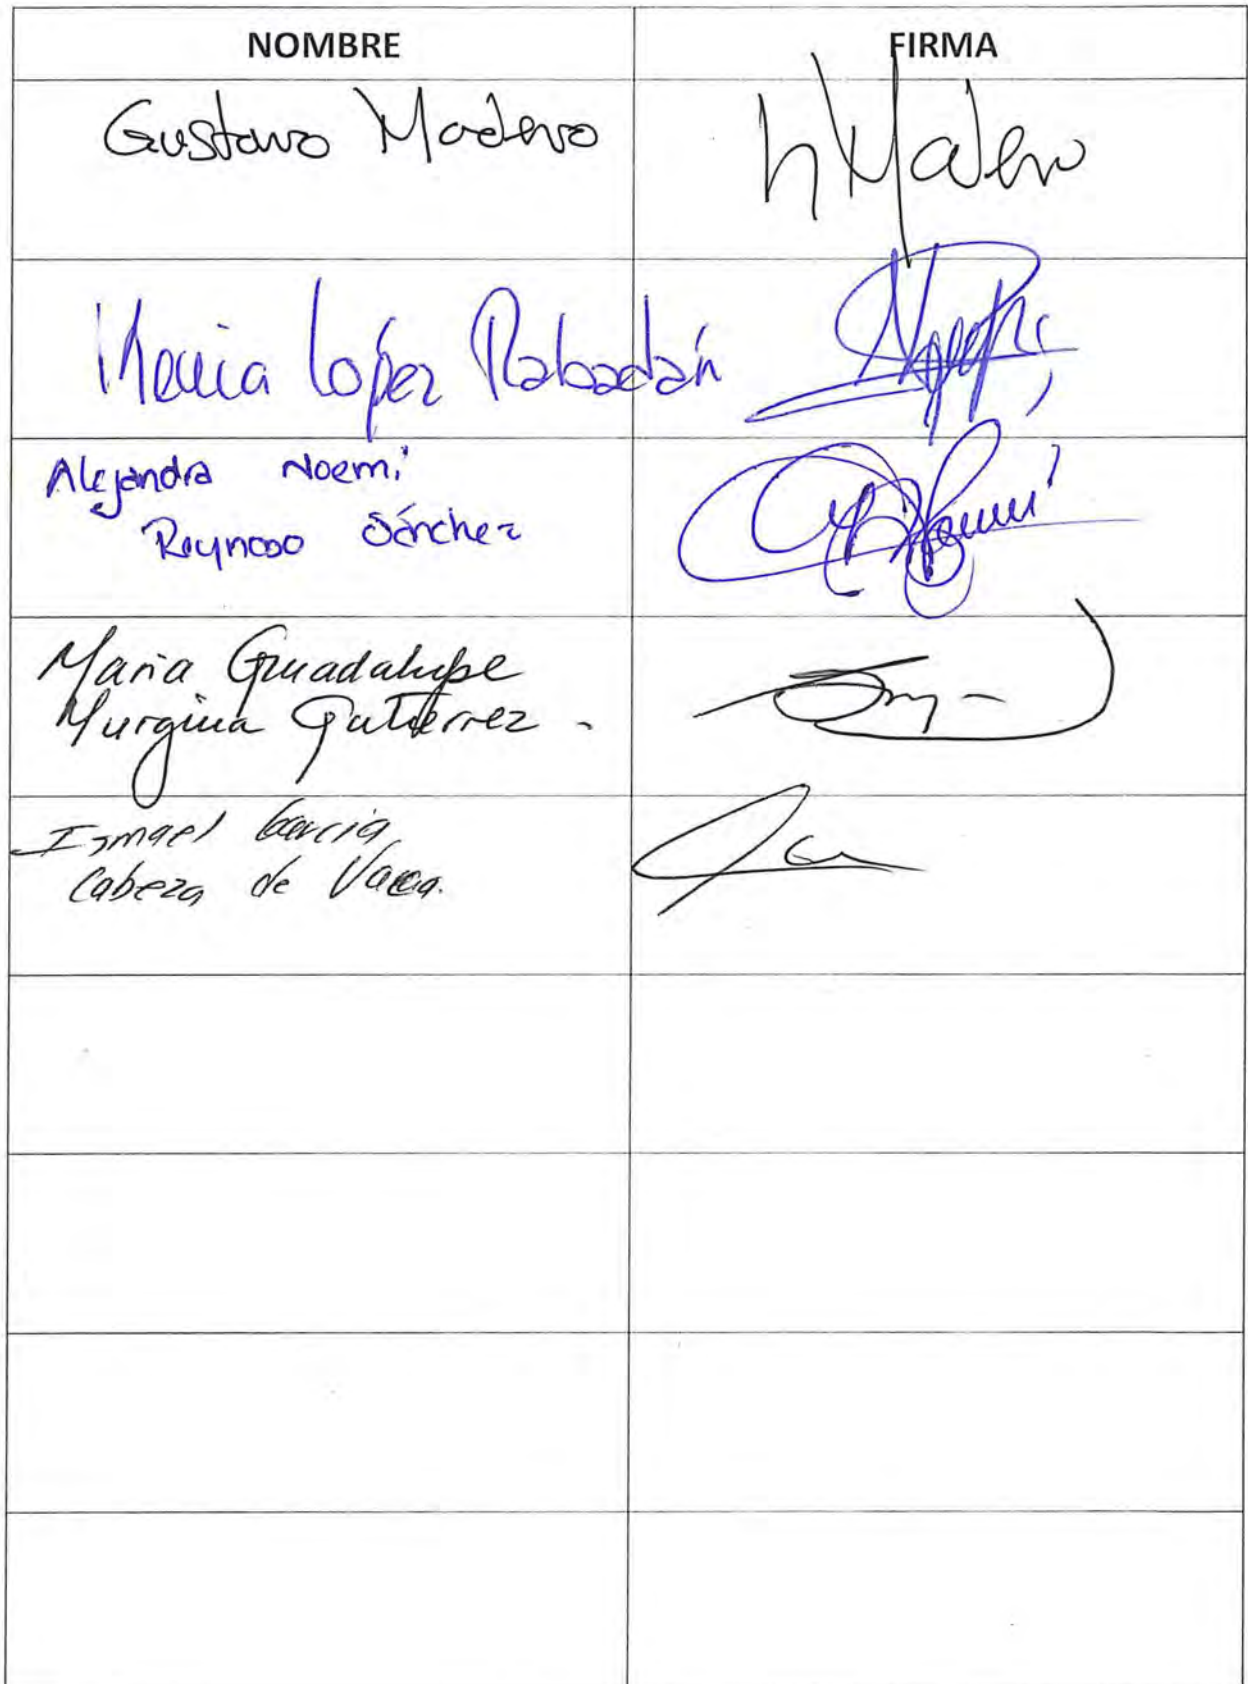 NOMBRE FIRMA
Gustavo Madero
Kenia López Rabadán
Alejandra Noemí
Reynoso Sánchez
Maria Guadalupe
Murguia Gutierrez.
Ismael García
Cabeza de Vaca.